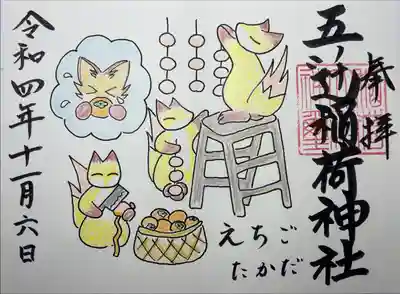 奉拝
五辻稲荷神社
えちご
たかだ
令和四年十一月六日